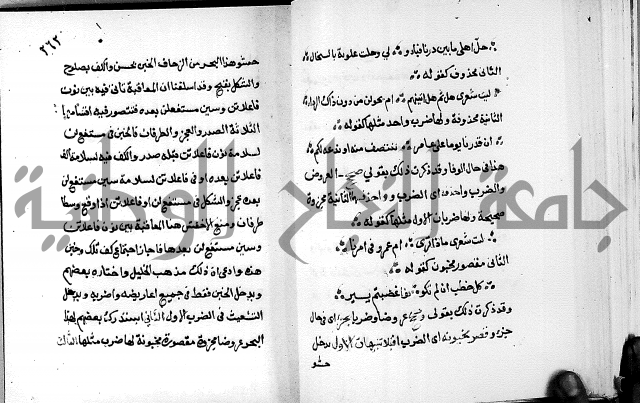 حل اهلي ما بين درنا فبادو لي وحلت علوية بالسخال
الثاني محذوف كقوله
ليت شعري هل ثم هل اتينهم ام يحولن من دون ذاك الردا
الثانية محذوفة ولها ضرب واحد مثلها كقوله
ان قدرنا يوما على عامر ننتصف منه او ندعه لكم
هذا في حال الوفا وقد ذكرت ذلك بقولي صحيح العروض
والضرب واحذف اي الضرب الثانية مجزوة
صحيحة ولها ضربان الاول مثلها كقوله
ليت شعري ماذا ترى ام عمرو في امرنا
الثاني مقصور مخبون كقوله
كل خطب ان لم تكو نوا غضبتم يسير
وقد ذكرت ذلك بقولي عروضا وضربا في حال
جزء وقصر اي الضرب تنبيهات الاول يدخل
حشو
٢٦٣
حشو هذا البحر من الزحاف الخبن بحسن والكف بصلاح
والشكل بقبح وقد اسلفنا ان المعاقبة تاتي فيه بين نون
فاعلاتن وسين مستفعلن بعده فتتصور فيه اقسامها
الثلاثة الصدر والعجز والطرفان فالخبن في مستفعلن
لسلامة نون فاعلاتن قبله صدر والكف فيه لسلامة الف
فاعلاتن بعده او في فاعلاتن لسلامة سين مستفعلن
بعده عجز والشكل في مستفعلن او فاعلاتن اذا وقع وسطا
طرفان ومنع الاخفش هنا المعاقبة بين نون فاعلاتن
وسين مستفعلن بعدها فاجاز اجتماع كف تلك وخبن
هذه وادعى ان ذلك مذهب الخليل واختاره بعضهم
ويدخل الخبن فقط في جميع اعاريضه واضربه ويدخل
التشعيث في الضرب الاول الثاني استدرك بعضهم لهذا
البحر عروضا مجزوة مقصورة مخبونة لها ضرب مثلها الثالث
جامعة النجاح الوطنية